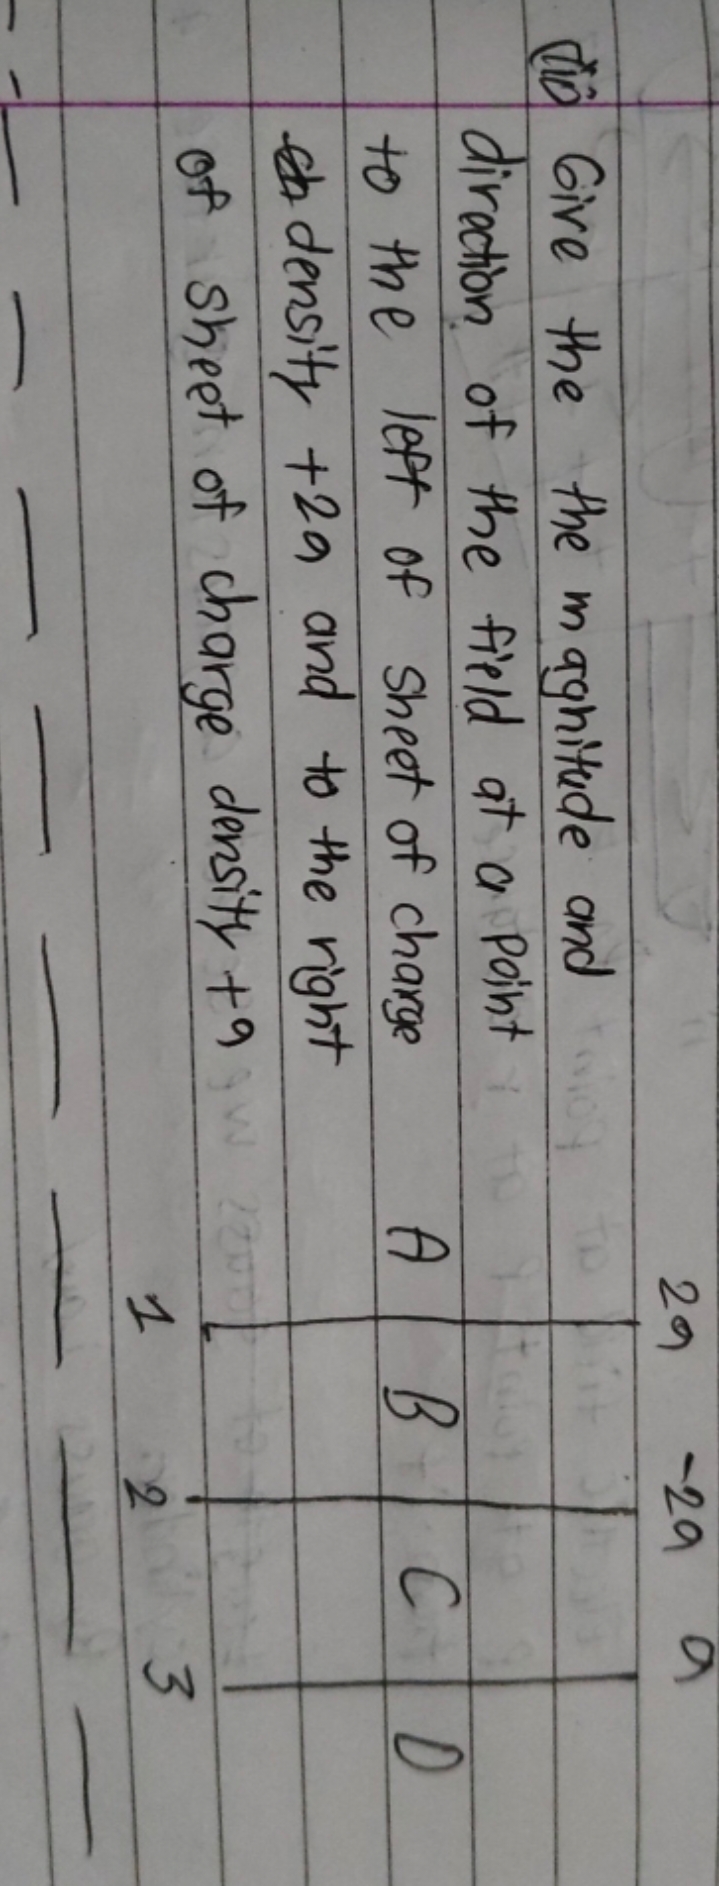 (iii) Give the the magnitude and
direction of the field at a point
to the left of sheet of charge
density +2q and to the right
of sheet of charge density +q
2q -2q q
A B C D
1 2 3